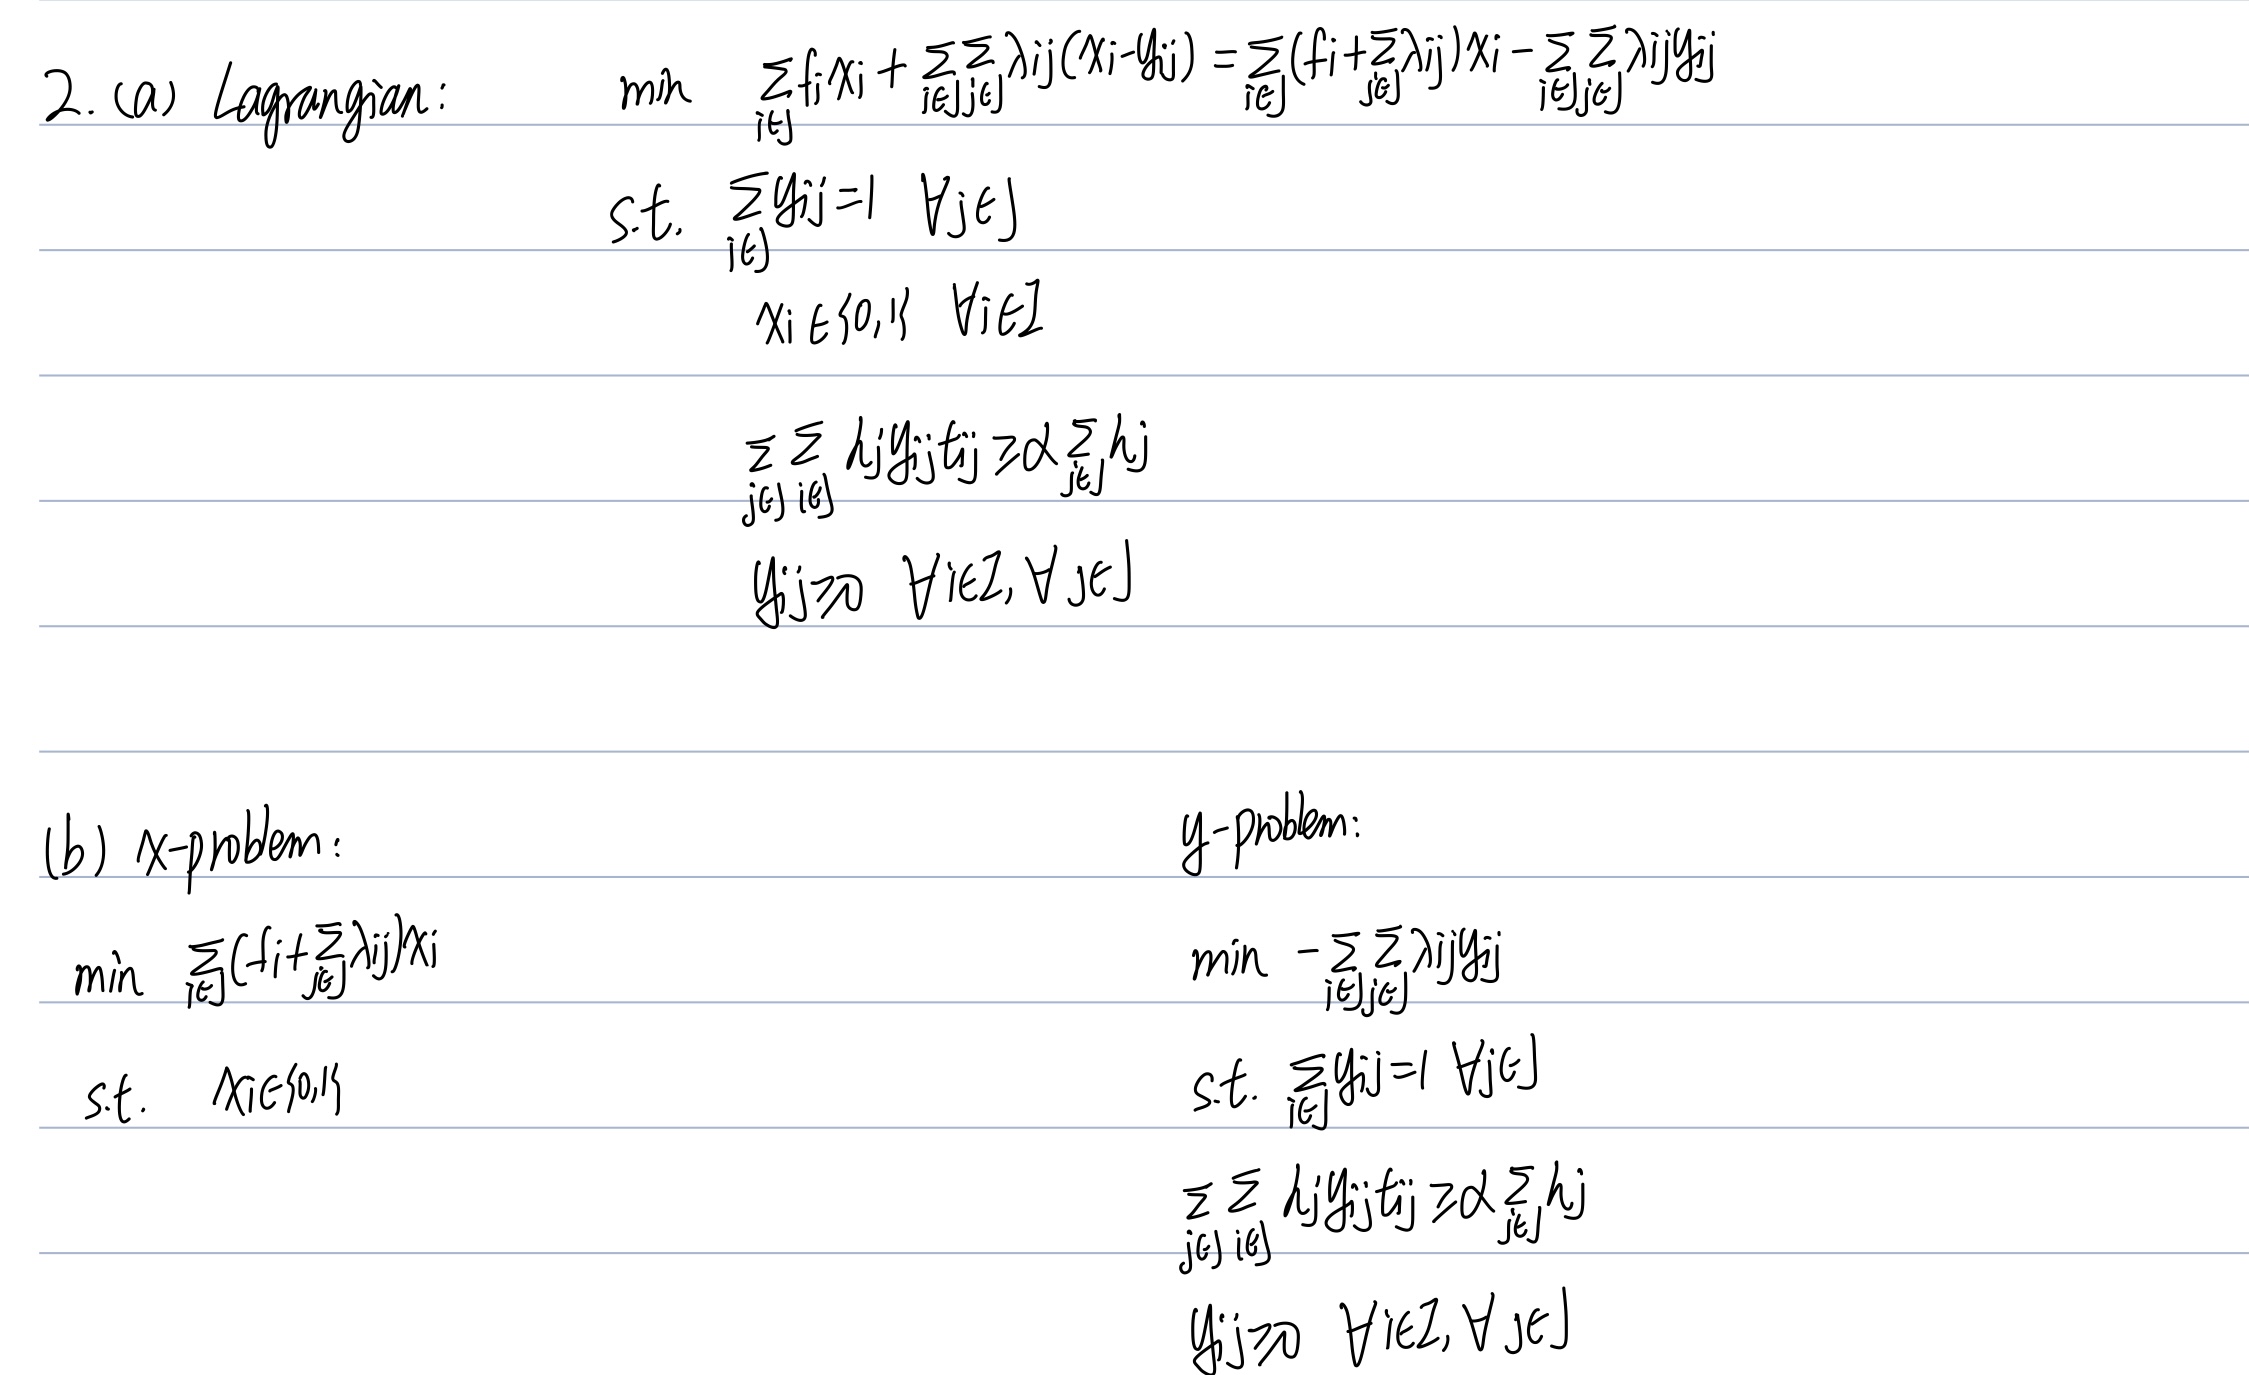 2. (a) Lagrangian: min ∑_{i∈J} fixi + ∑_{i∈J}∑_{j∈J} λij(xi-yij) = ∑_{i∈J}(fi+∑_{j∈J}λij)xi - ∑_{i∈J}∑_{j∈J} λijyij
s.t. ∑_{i∈J} yij=1 ∀j∈J
xi∈{0,1} ∀i∈I
∑_{j∈J} ∑_{i∈J} hjyijtij ≥α∑_{j∈J} hj
yij≥0 ∀i∈I, ∀j∈J
(b) x-problem: y-problem:
min ∑_{i∈J}(fi+∑_{j∈J}λij)xi min -∑_{i∈J}∑_{j∈J} λijyij
s.t. xi∈{0,1} s.t. ∑_{i∈J} yij=1 ∀j∈J
∑_{j∈J} ∑_{i∈J} hjyijtij ≥α∑_{j∈J} hj
yij≥0 ∀i∈I, ∀j∈J